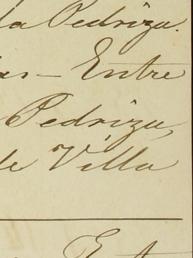 la Pedriza.
as — Entre
Pedriza,
de Villa
Ent